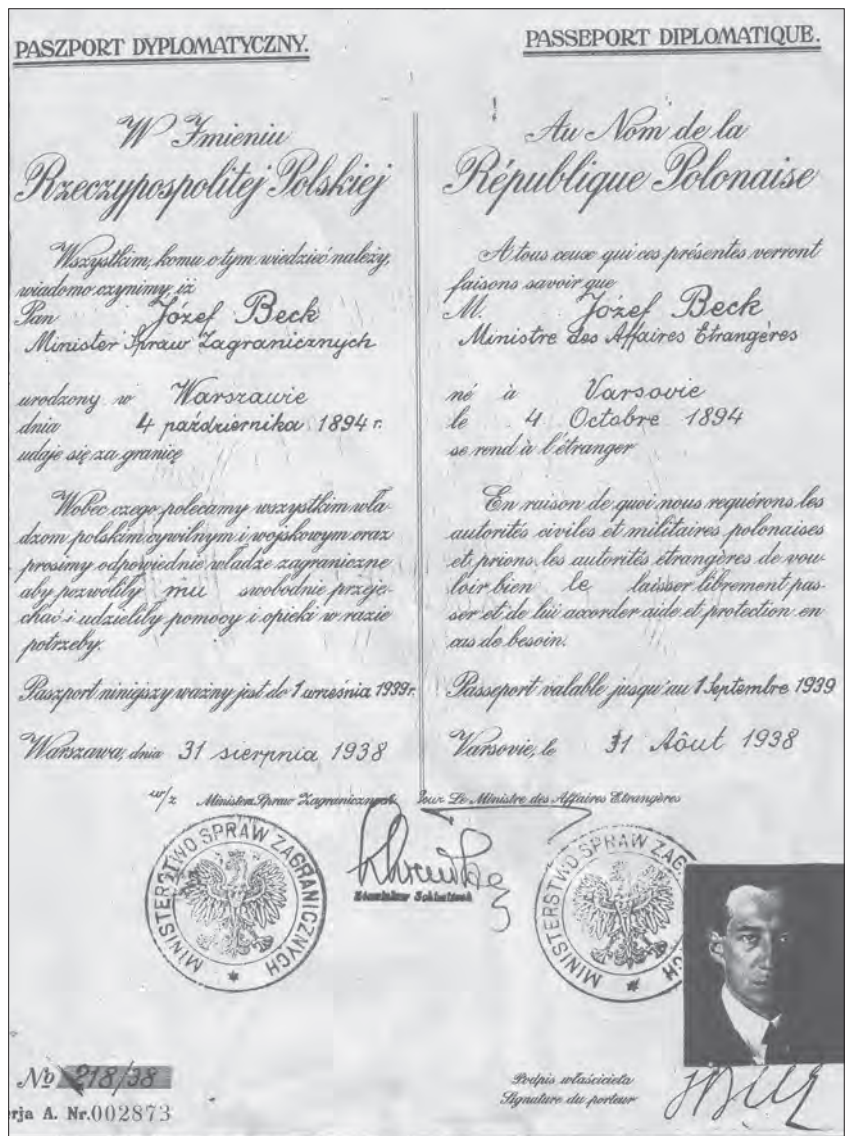 PASZPORT DYPLOMATYCZNY.
W Imieniu
Rzeczypospolitej Polskiej
Wszystkim, komu o tym wiedzieć należy,
wiadomo czynimy, iż
Pan Józef Beck
Minister Spraw Zagranicznych
urodzony w Warszawie
dnia 4 października 1894 r.
udaje się za granicę
Wobec czego polecamy wszystkim wła-
dzom polskim cywilnym i wojskowym oraz
prosimy odpowiednie władze zagraniczne
aby pozwoliły mu swobodnie przeje-
chać i udzieliły pomocy i opieki w razie
potrzeby.
Paszport niniejszy ważny jest do 1 września 1939 r.
Warszawa, dnia 31 sierpnia 1938
w/z Ministra Spraw Zagranicznych
PASSEPORT DIPLOMATIQUE.
Au Nom de la
République Polonaise
A tous ceux qui ces présentes verront
faisons savoir que
M. Józef Beck
Ministre des Affaires Etrangères
né à Varsovie
le 4 Octobre 1894
se rend à l'étranger
En raison de quoi nous requérons les
autorités civiles et militaires polonaises
et prions les autorités étrangères de vou-
loir bien le laisser librement pas-
ser et de lui accorder aide et protection en
cas de besoin.
Passeport valable jusqu'au 1 Septembre 1939
Varsovie, le 31 Aôut 1938
Pour Le Ministre des Affaires Etrangères
MINISTERSTWO SPRAW ZAGRANICZNYCH
MINISTERSTWO SPRAW ZAG CH
No 218/38
rja A. Nr.002873
Podpis właściciela
Signature du porteur